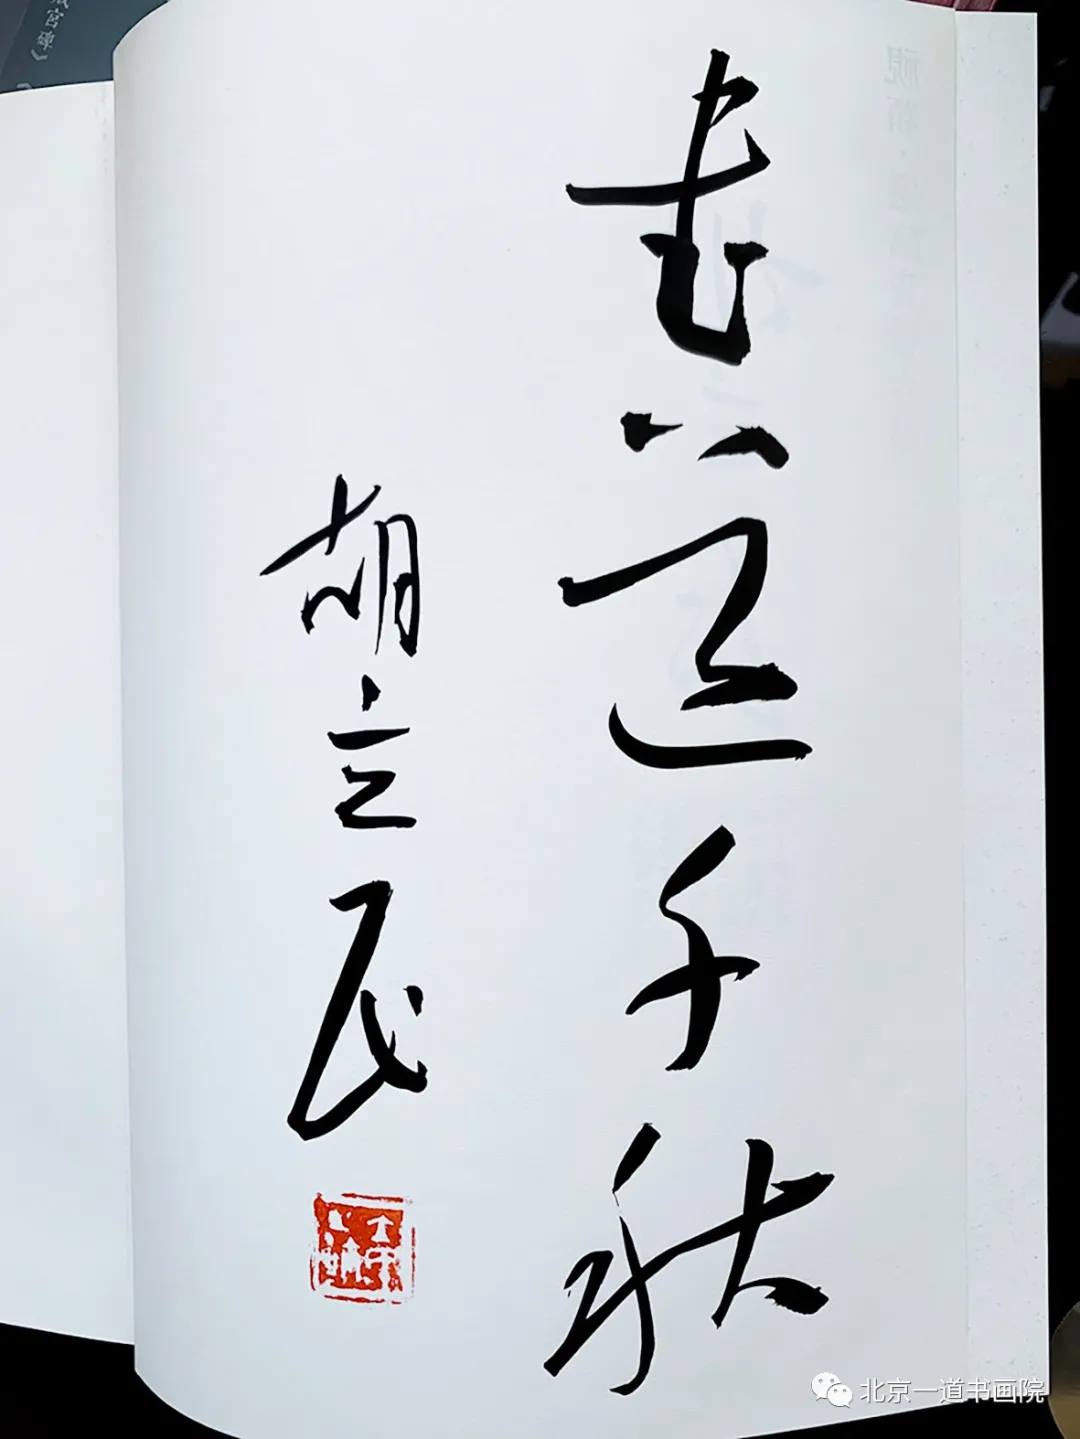 書道千秋
胡立民
北京一道书画院